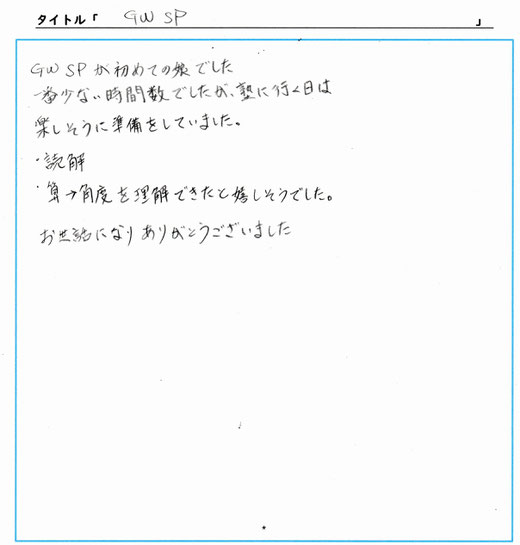 タイトル「 GW SP 」
GW SP が初めての娘でした
一番少ない時間数でしたが、塾に行く日は
楽しそうに準備をしていました。
・読解
・算→角度を理解できたと嬉しそうでした。
お世話になりありがとうございました